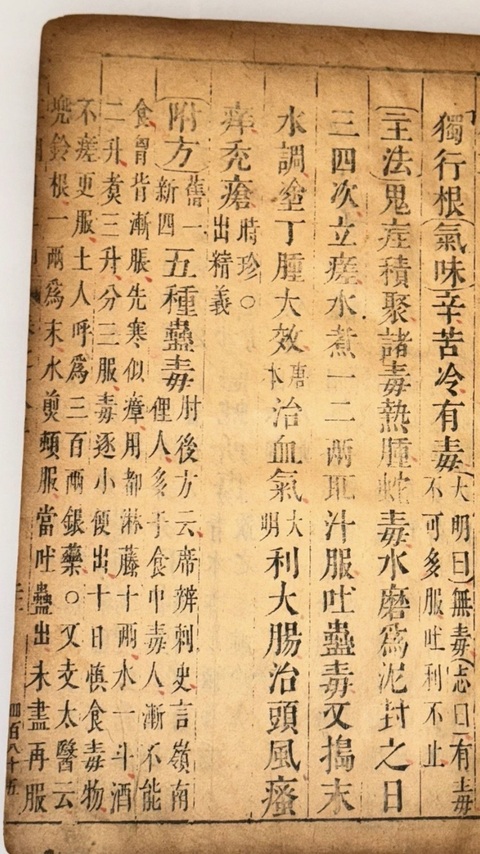 獨行根〔氣味〕辛苦冷有毒〔大明曰〕無毒〔志曰〕有毒不可多服吐利不止
〔主法〕鬼疰積聚諸毒熱腫蛇毒水磨爲泥封之日
三四次立瘥水煮一二兩取汁服吐蠱毒又搗末
水調塗丁腫大效唐本治血氣大明利大腸治頭風瘙
痒禿瘡時珍○出精義
〔附方〕舊一新四五種蠱毒肘後方云席辨刺史言嶺南俚人多于食中毒人漸不能
食胷背漸脹先寒似瘴用都淋藤十兩水一斗酒
二升煮三升分三服毒逐小便出十日慎食毒物
不瘥更服土人呼爲三百兩銀藥○又支太醫云
兜鈴根一兩爲末水煎頓服當吐蠱出未盡再服
四百八十五